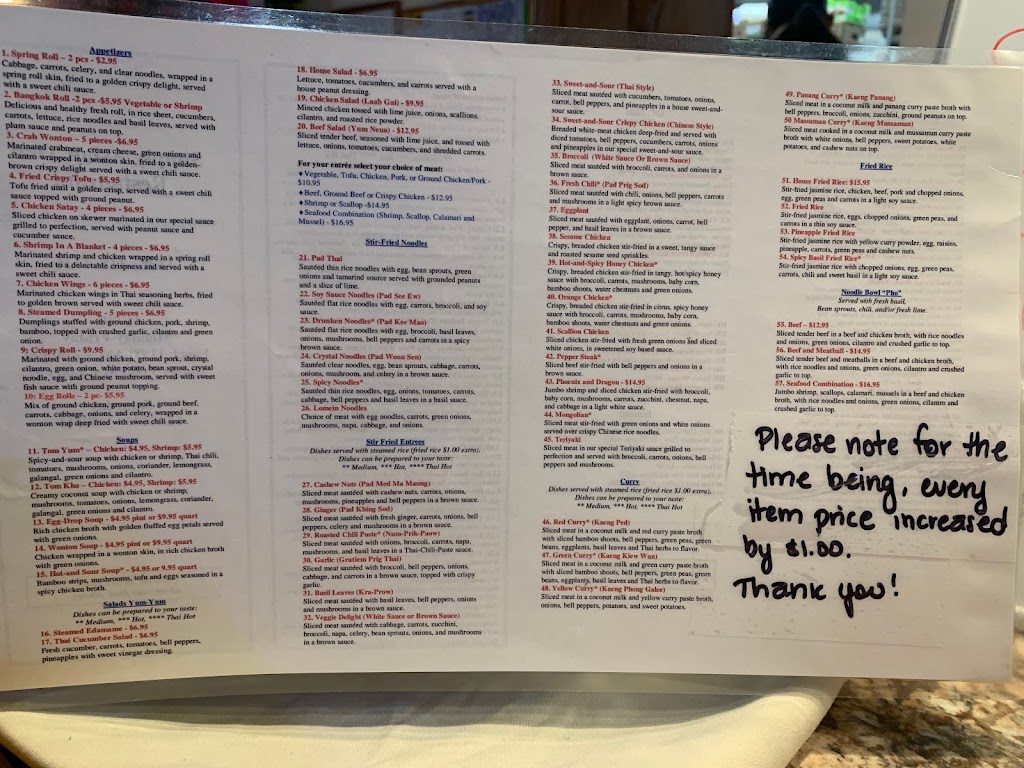 Appetizers
1. Spring Roll – 2 pcs - $2.95
Cabbage, carrots, celery, and clear noodles, wrapped in a
spring roll skin, fried to a golden crispy delight, served
with a sweet chili sauce.
2. Bangkok Roll -2 pcs -$5.95 Vegetable or Shrimp
Delicious and healthy fresh roll, in rice sheet, cucumbers,
carrots, lettuce, rice noodles and basil leaves, served with
plum sauce and peanuts on top.
3. Crab Wonton – 5 pieces -$6.95
Marinated crabmeat, cream cheese, green onions and
cilantro wrapped in a wonton skin, fried to a golden-
brown crispy delight served with a sweet chili sauce.
4. Fried Crispy Tofu - $5.95
Tofu fried until a golden crisp, served with a sweet chili
sauce topped with ground peanut.
5. Chicken Satay - 4 pieces - $6.95
Sliced chicken on skewer marinated in our special sauce
grilled to perfection, served with peanut sauce and
cucumber sauce.
6. Shrimp In A Blanket - 4 pieces - $6.95
Marinated shrimp and chicken wrapped in a spring roll
skin, fried to a delectable crispness and served with a
sweet chili sauce.
7. Chicken Wings - 6 pieces - $6.95
Marinated chicken wings in Thai seasoning herbs, fried
to golden brown served with sweet chili sauce.
8. Steamed Dumpling - 5 pieces - $6.95
Dumplings stuffed with ground chicken, pork, shrimp,
bamboo, topped with crushed garlic, cilantro and green
onion.
9: Crispy Roll - $9.95
Marinated with ground chicken, ground pork, shrimp,
cilantro, green onion, white potato, bean sprout, crystal
noodle, egg, and Chinese mushroom, served with sweet
fish sauce with ground peanut topping.
10: Egg Rolls – 2 pc- $5.95
Mix of ground chicken, ground pork, ground beef,
carrots, cabbage, onions, and celery, wrapped in a
wonton wrap deep fried with sweet chili sauce.
Soups
11. Tom Yum* – Chicken: $4.95, Shrimp: $5.95
Spicy-and-sour soup with chicken or shrimp, Thai chili,
tomatoes, mushrooms, onions, coriander, lemongrass,
galangal, green onions and cilantro.
12. Tom Kha – Chicken: $4.95, Shrimp: $5.95
Creamy coconut soup with chicken or shrimp,
mushrooms, tomatoes, onions, lemongrass, coriander,
galangal, green onions and cilantro.
13. Egg-Drop Soup - $4.95 pint or $9.95 quart
Rich chicken broth with golden fluffed egg petals served
with green onions.
14. Wonton Soup - $4.95 pint or $9.95 quart
Chicken wrapped in a wonton skin, in rich chicken broth
with green onions.
15. Hot-and Sour Soup* - $4.95 or 9.95 quart
Bamboo strips, mushrooms, tofu and eggs seasoned in a
spicy chicken broth.
Salads Yum-Yum
Dishes can be prepared to your taste:
** Medium, *** Hot, **** Thai Hot
16. Steamed Edamame - $6.95
17. Thai Cucumber Salad - $6.95
Fresh cucumber, carrots, tomatoes, bell peppers,
pineapples with sweet vinegar dressing.
18. House Salad - $6.95
Lettuce, tomatoes, cucumbers, and carrots served with a
house peanut dressing.
19. Chicken Salad (Laab Gai) - $9.95
Minced chicken tossed with lime juice, onions, scallions,
cilantro, and roasted rice powder.
20. Beef Salad (Yum Neua) - $12.95
Sliced tender beef, seasoned with lime juice, and tossed with
lettuce, onions, tomatoes, cucumbers, and shredded carrots.
For your entrée select your choice of meat:
♦ Vegetable, Tofu, Chicken, Pork, or Ground Chicken/Pork -
$10.95
♦ Beef, Ground Beef or Crispy Chicken - $12.95
♦ Shrimp or Scallop -$14.95
♦ Seafood Combination (Shrimp, Scallop, Calamari and
Mussel) - $16.95
Stir-Fried Noodles
21. Pad Thai
Sautéed thin rice noodles with egg, bean sprouts, green
onions and tamarind source served with grounded peanuts
and a slice of lime.
22. Soy Sauce Noodles (Pad See Ew)
Sautéed flat rice noodles with egg, carrots, broccoli, and soy
sauce.
23. Drunken Noodles* (Pad Kee Mao)
Sautéed flat rice noodles with egg, broccoli, basil leaves,
onions, mushrooms, bell peppers and carrots in a spicy
brown sauce.
24. Crystal Noodles (Pad Woon Sen)
Sautéed clear noodles, egg, bean sprouts, cabbage, carrots,
onions, mushroom, and celery in a brown sauce.
25. Spicy Noodles*
Sautéed thin rice noodles, egg, onions, tomatoes, carrots,
cabbage, bell peppers and basil leaves in a basil sauce.
26. Lomein Noodles
Choice of meat with egg noodles, carrots, green onions,
mushrooms, napa, cabbage, and onions.
Stir Fried Entrees
Dishes served with steamed rice (fried rice $1.00 extra).
Dishes can be prepared to your taste:
** Medium, *** Hot, **** Thai Hot
27. Cashew Nuts (Pad Med Ma Maung)
Sliced meat sautéed with cashew nuts, carrots, onions,
mushrooms, pineapples and bell peppers in a brown sauce.
28. Ginger (Pad Khing Sod)
Sliced meat sautéed with fresh ginger, carrots, onions, bell
peppers, celery and mushrooms in a brown sauce.
29. Roasted Chili Paste* (Num-Prik-Paow)
Sliced meat sautéed with onions, broccoli, carrots, napa,
mushrooms, and basil leaves in a Thai-Chili-Paste sauce.
30. Garlic (Gratien Prig Thai)
Sliced meat sautéed with broccoli, bell peppers, onions,
cabbage, and carrots in a brown sauce, topped with crispy
garlic.
31. Basil Leaves (Kra-Prow)
Sliced meat sautéed with basil leaves, bell peppers, onions
and mushrooms in a brown sauce.
32. Veggie Delight (White Sauce or Brown Sauce)
Sliced meat sautéed with cabbage, carrots, zucchini,
broccoli, napa, celery, bean sprouts, onions, and mushrooms
in a brown sauce.
33. Sweet-and-Sour (Thai Style)
Sliced meat sautéed with cucumbers, tomatoes, onions,
carrot, bell peppers, and pineapples in a house sweet-and-
sour sauce.
34. Sweet-and-Sour Crispy Chicken (Chinese Style)
Breaded white-meat chicken deep-fried and served with
diced tomatoes, bell peppers, cucumbers, carrots, onions
and pineapples in our special sweet-and-sour sauce.
35. Broccoli (White Sauce Or Brown Sauce)
Sliced meat sautéed with broccoli, carrots, and onions in a
brown sauce.
36. Fresh Chili* (Pad Prig Sod)
Sliced meat sautéed with chili, onions, bell peppers, carrots
and mushrooms in a light spicy brown sauce.
37. Eggplant
Sliced meat sautéed with eggplant, onions, carrot, bell
pepper, and basil leaves in a brown sauce.
38. Sesame Chicken
Crispy, breaded chicken stir-fried in a sweet, tangy sauce
and roasted sesame seed sprinkles.
39. Hot-and-Spicy Honey Chicken*
Crispy, breaded chicken stir-fried in tangy, hot/spicy honey
sauce with broccoli, carrots, mushrooms, baby corn,
bamboo shoots, water chestnuts and green onions.
40. Orange Chicken*
Crispy, breaded chicken stir-fried in citrus, spicy honey
sauce with broccoli, carrots, mushrooms, baby corn,
bamboo shoots, water chestnuts and green onions.
41. Scallion Chicken
Sliced chicken stir-fried with fresh green onions and sliced
white onions, in sweetened soy based sauce.
42. Pepper Steak*
Sliced beef stir-fried with bell peppers and onions in a
brown sauce.
43. Phoenix and Dragon - $14.95
Jumbo shrimp and sliced chicken stir-fried with broccoli,
baby corn, mushrooms, carrots, zucchini, chestnut, napa,
and cabbage in a light white sauce.
44. Mongolian*
Sliced meat stir-fried with green onions and white onions
served over crispy Chinese rice noodles.
45. Teriyaki
Sliced meat in our special Teriyaki sauce grilled to
perfection and served with broccoli, carrots, onions, bell
peppers and mushrooms.
Curry
Dishes served with steamed rice (fried rice $1.00 extra).
Dishes can be prepared to your taste:
** Medium, *** Hot, **** Thai Hot
46. Red Curry* (Kaeng Ped)
Sliced meat in a coconut milk and red curry paste broth
with sliced bamboo shoots, bell peppers, green peas, green
beans, eggplants, basil leaves and Thai herbs to flavor.
47. Green Curry* (Kaeng Kiew Wan)
Sliced meat in a coconut milk and green curry paste broth
with sliced bamboo shoots, bell peppers, green peas, green
beans, eggplants, basil leaves and Thai herbs to flavor.
48. Yellow Curry* (Kaeng Phong Galee)
Sliced meat in a coconut milk and yellow curry paste broth,
onions, bell peppers, potatoes, and sweet potatoes.
49. Panang Curry* (Kaeng Panang)
Sliced meat in a coconut milk and panang curry paste broth with
bell peppers, broccoli, onions, zucchini, ground peanuts on top.
50 Massaman Curry* (Kaeng Mussaman)
Sliced meat cooked in a coconut milk and mussaman curry paste
broth with white onions, bell peppers, sweet potatoes, white
potatoes, and cashew nuts on top.
Fried Rice
51. House Fried Rice: $15.95
Stir-fried jasmine rice, chicken, beef, pork and chopped onions,
egg, green peas and carrots in a light soy sauce.
52. Fried Rice
Stir-fried jasmine rice, eggs, chopped onions, green peas, and
carrots in a thin soy sauce.
53. Pineapple Fried Rice
Stir-fried jasmine rice with yellow curry powder, egg, raisins,
pineapple, carrots, green peas and cashew nuts.
54. Spicy Basil Fried Rice*
Stir-fried jasmine rice with chopped onions, egg, green peas,
carrots, chili and sweet basil in a light soy sauce.
Noodle Bowl "Pho"
Served with fresh basil,
Bean sprouts, chili, and/or fresh lime.
55. Beef - $12.95
Sliced tender beef in a beef and chicken broth, with rice noodles
and onions, green onions, cilantro and crushed garlic to top.
56. Beef and Meatball - $14.95
Sliced tender beef and meatballs in a beef and chicken broth,
with rice noodles and onions, green onions, cilantro and crushed
garlic to top.
57. Seafood Combination - $16.95
Jumbo shrimp, scallops, calamari, mussels in a beef and chicken
broth, with rice noodles and onions, green onions, cilantro and
crushed garlic to top.
Please note for the
time being, every
item price increased
by $1.00.
Thank you!